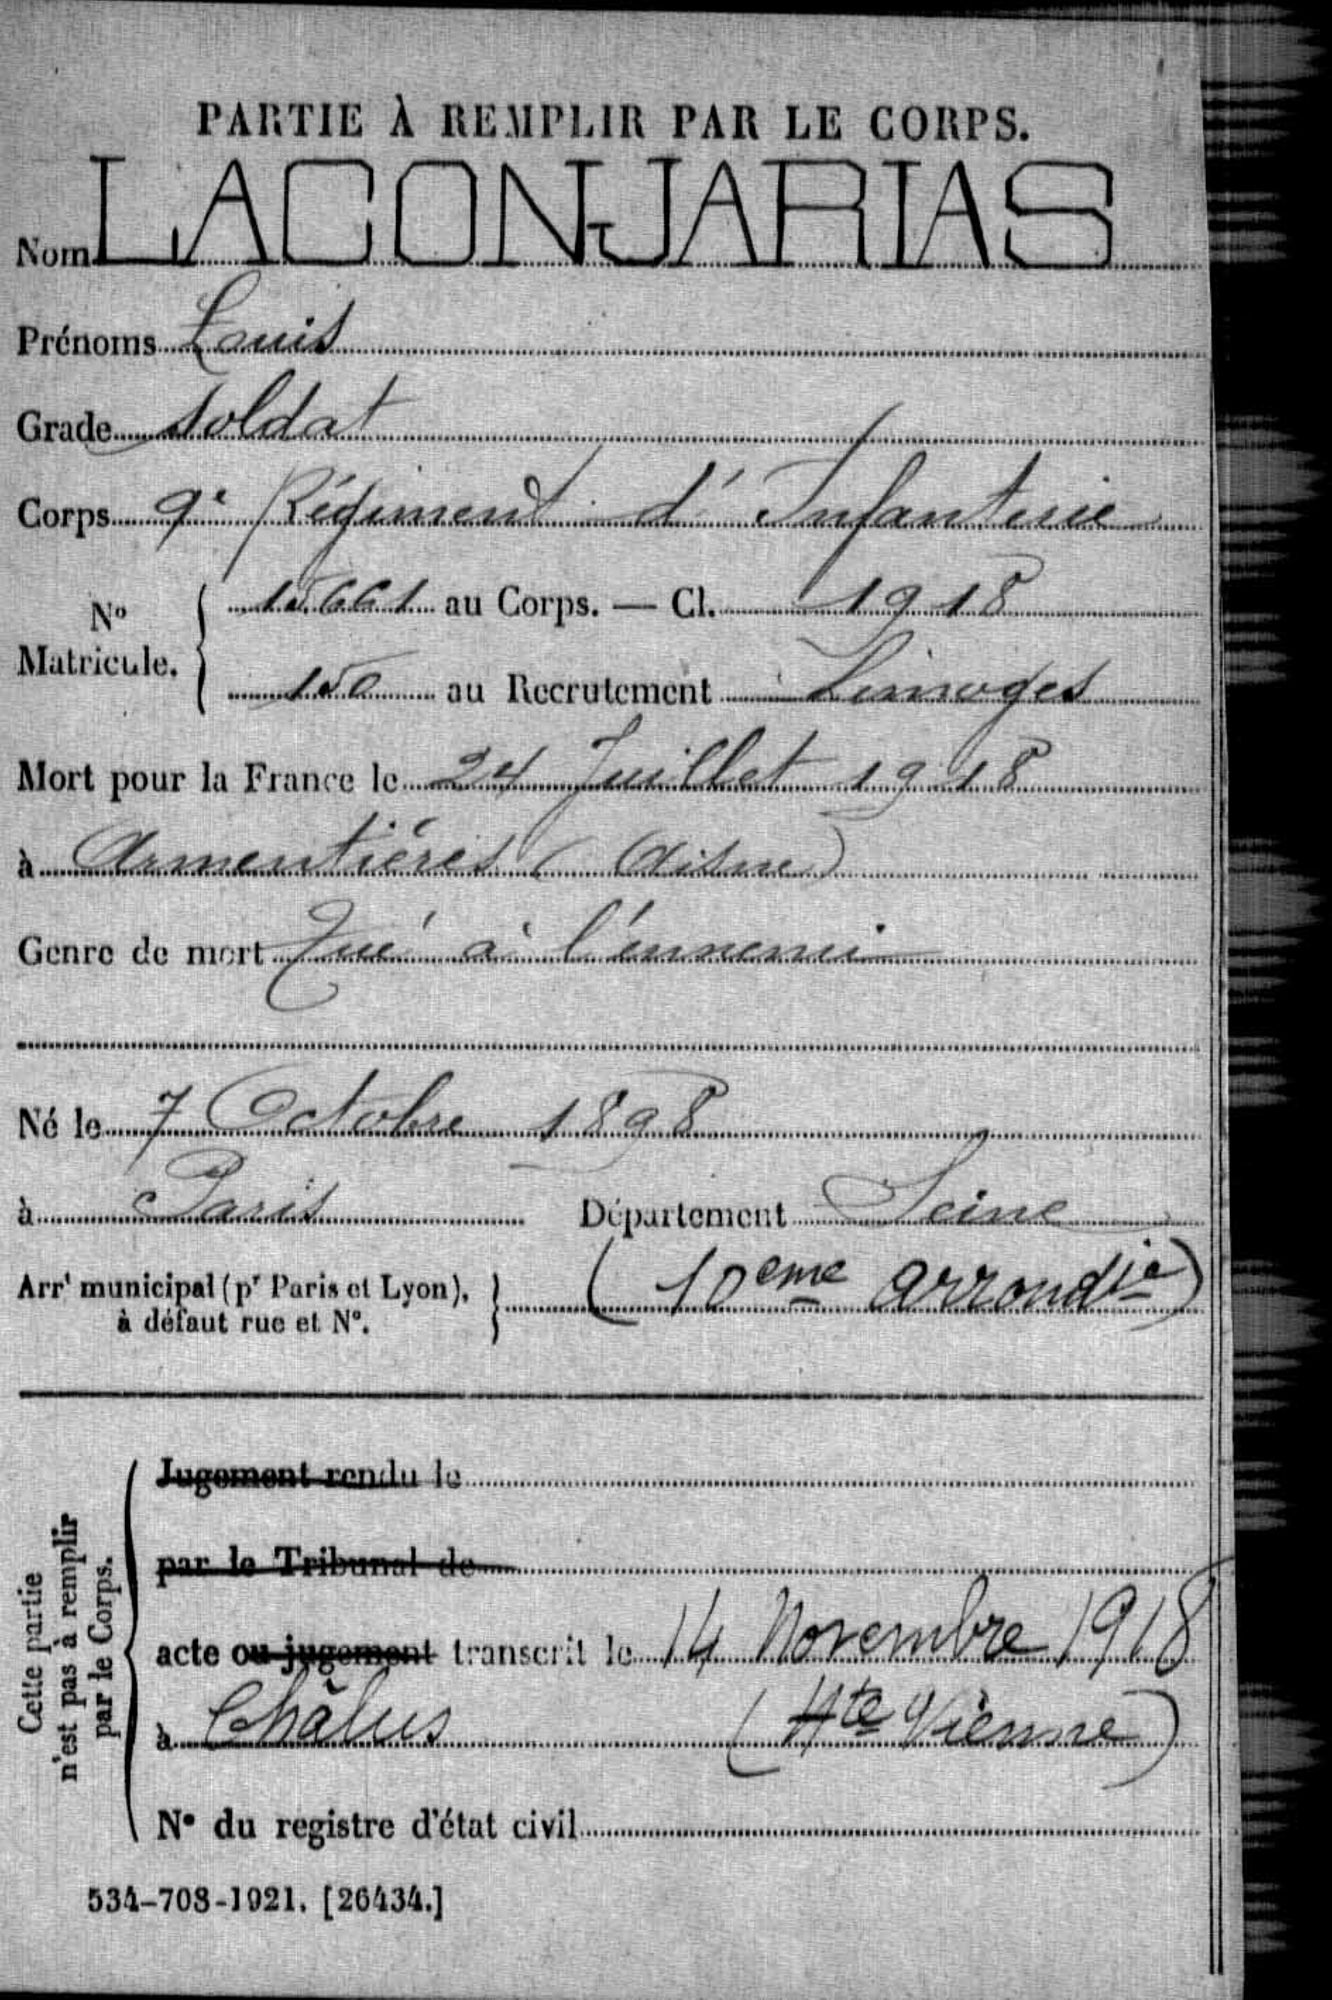 PARTIE À REMPLIR PAR LE CORPS.
Nom LACONJARIAS
Prénoms Louis
Grade Soldat
Corps 9e Régiment d'Infanterie
No Matricule. { 15661 au Corps. — Cl. 1918
150 au Recrutement Limoges
Mort pour la France le 24 Juillet 1918
à Armentiéres (Aisne)
Genre de mort Tué à l'ennemi
Né le 7 Octobre 1898
à Paris Département Seine
Arrt municipal (pr Paris et Lyon), à défaut rue et No. } (10eme arrondie)
Cette partie n'est pas à remplir par le Corps.
Jugement rendu le
par le Tribunal de
acte ou jugement transcrit le 14 Novembre 1918
à Châlus (Hte Vienne)
No du registre d'état civil
534-708-1921. [26434.]